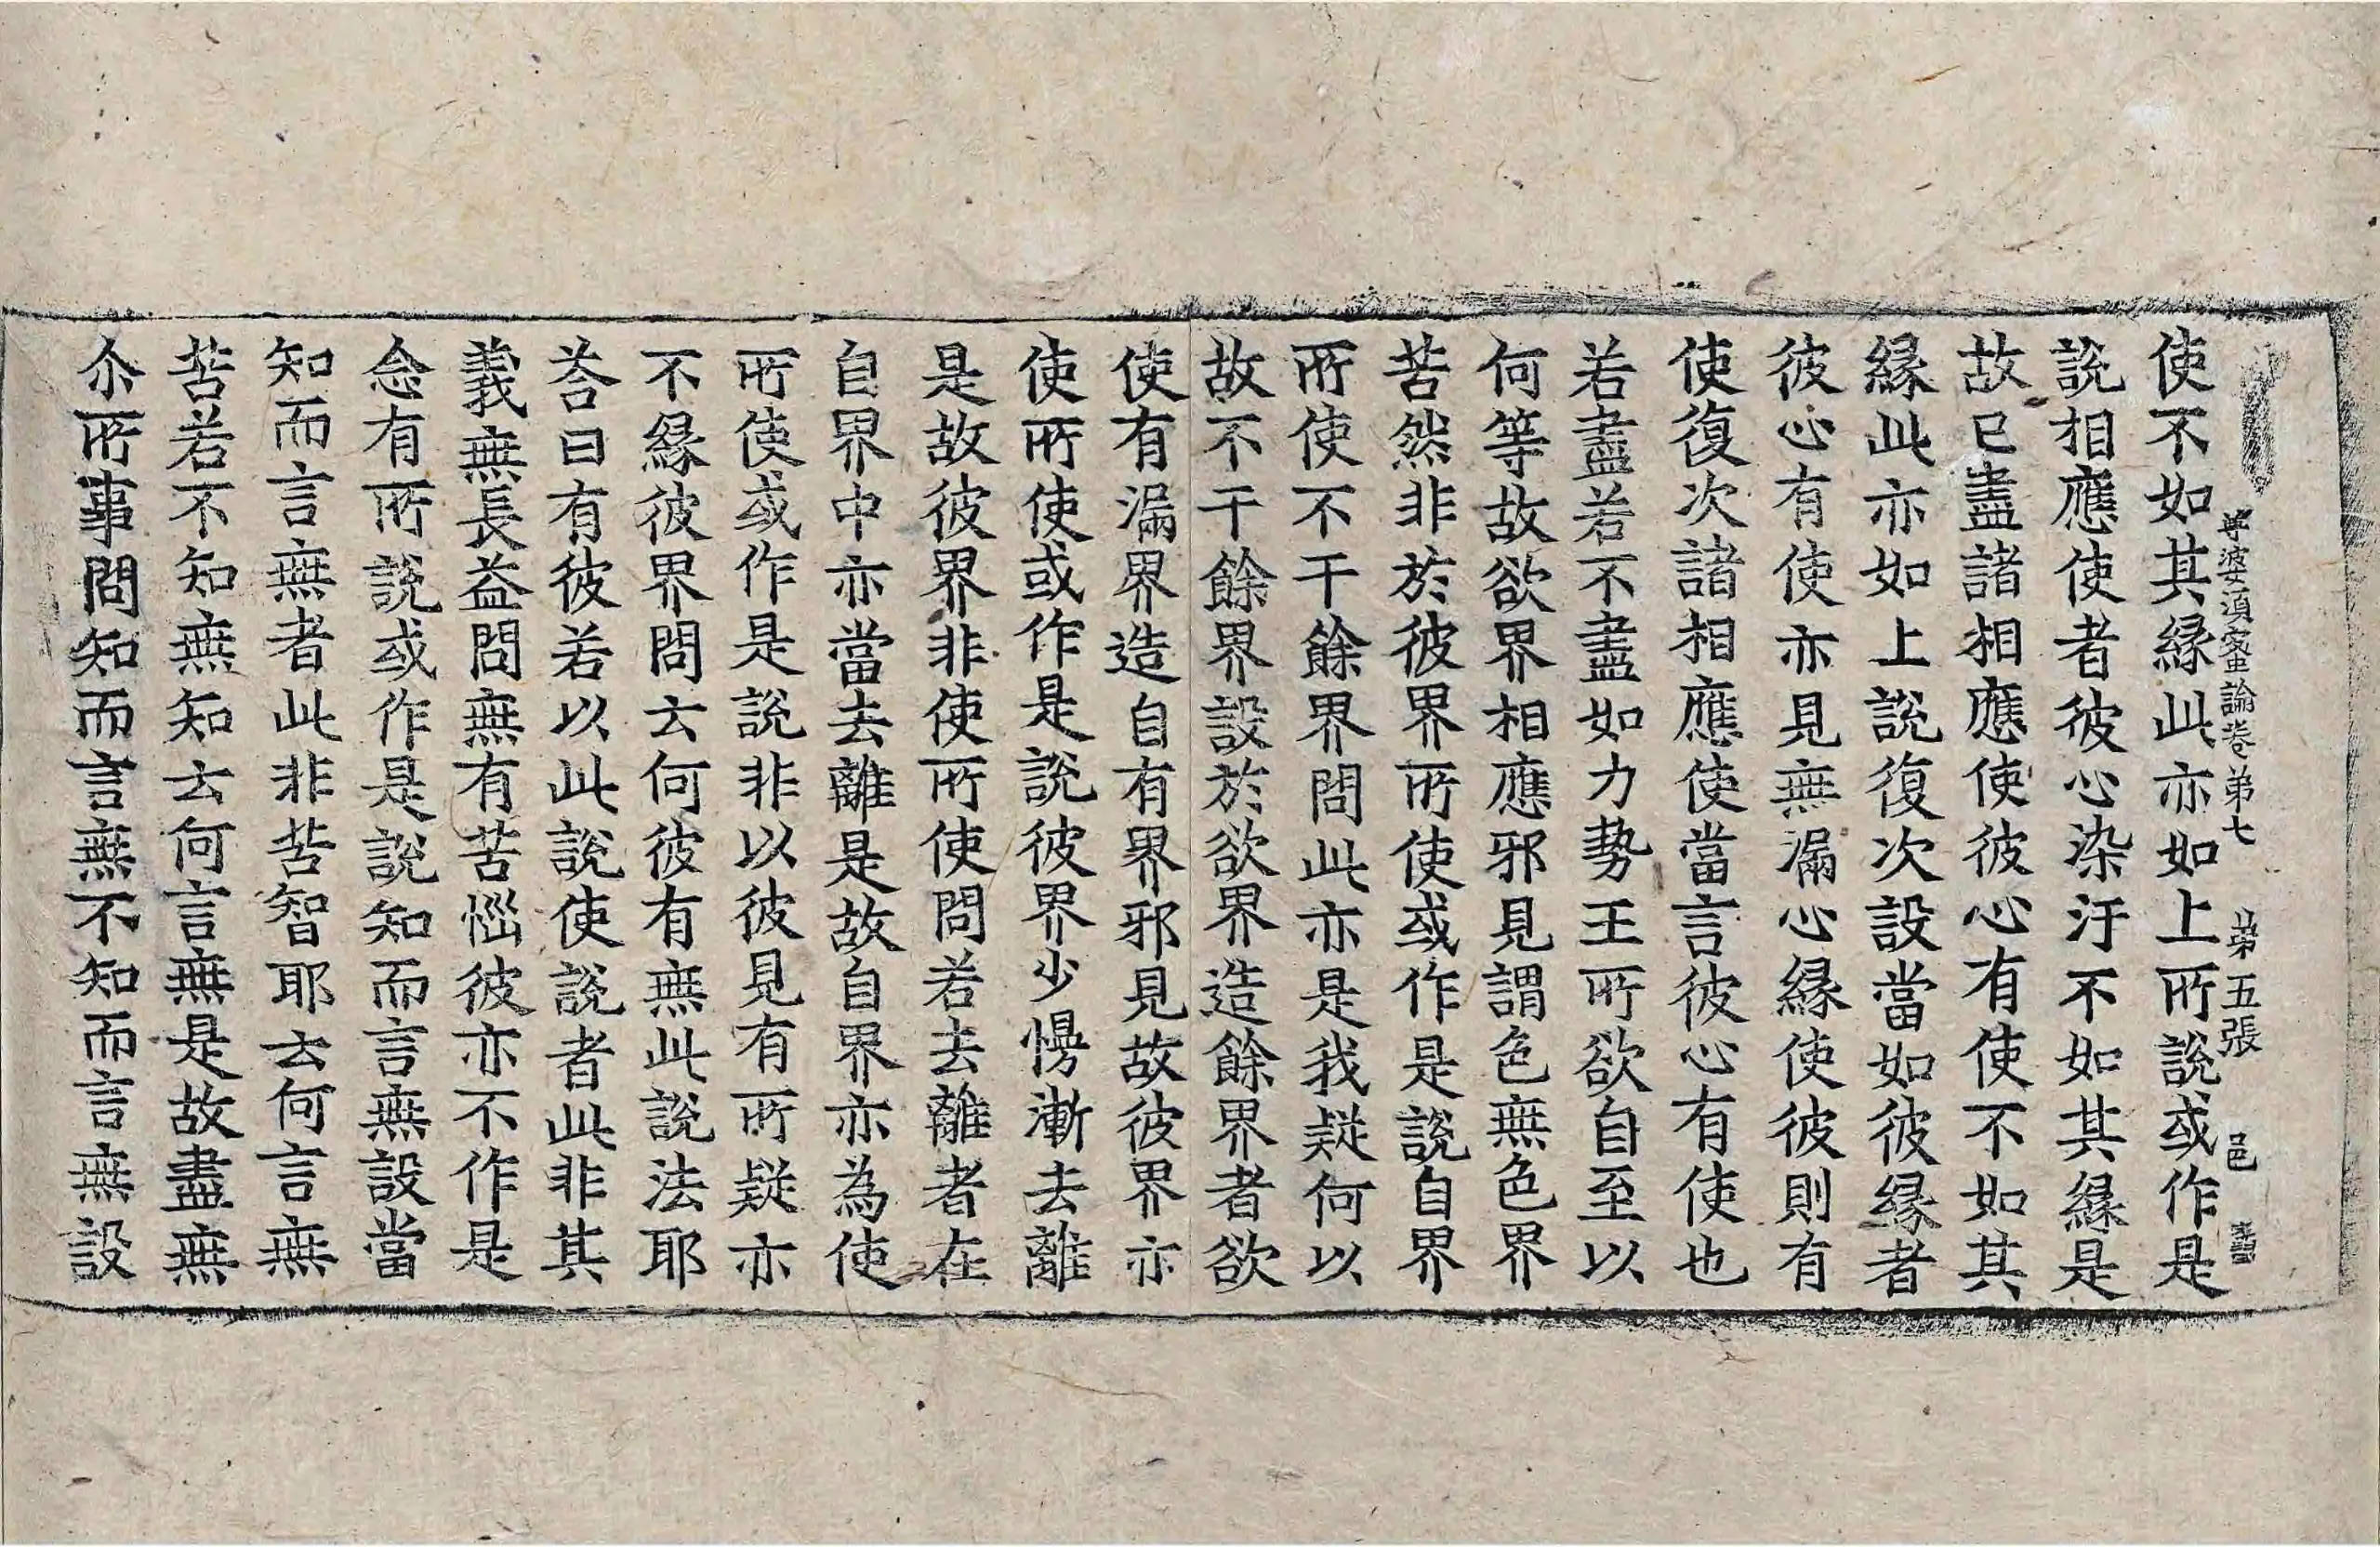 尊婆湏蜜論卷第七　第五張　邑
使不如其緣此亦如上所說或作是
說相應使者彼心染汙不如其緣是
故已盡諸相應使彼心有使不如其
緣此亦如上說復次設當如彼緣者
彼心有使亦見無漏心緣使彼則有
使復次諸相應使當言彼心有使也
若盡若不盡如力勢王所欲自至以
何等故欲界相應邪見謂色無色界
苦然非於彼界所使或作是說自界
所使不干餘界問此亦是我疑何以
故不干餘界設於欲界造餘界者欲
使有漏界造自有界邪見故彼界亦
使所使或作是說彼界少慢漸去離
是故彼界非使所使問若去離者在
自界中亦當去離是故自界亦為使
所使或作是說非以彼見有所疑亦
不緣彼界問云何彼有無此說法耶
荅曰有彼若以此說使說者此非其
義無長益問無有苦惱彼亦不作是
念有所說或作是說知而言無設當
知而言無者此非苦智耶云何言無
苦若不知無知云何言無是故盡無
尒所事問知而言無不知而言無設